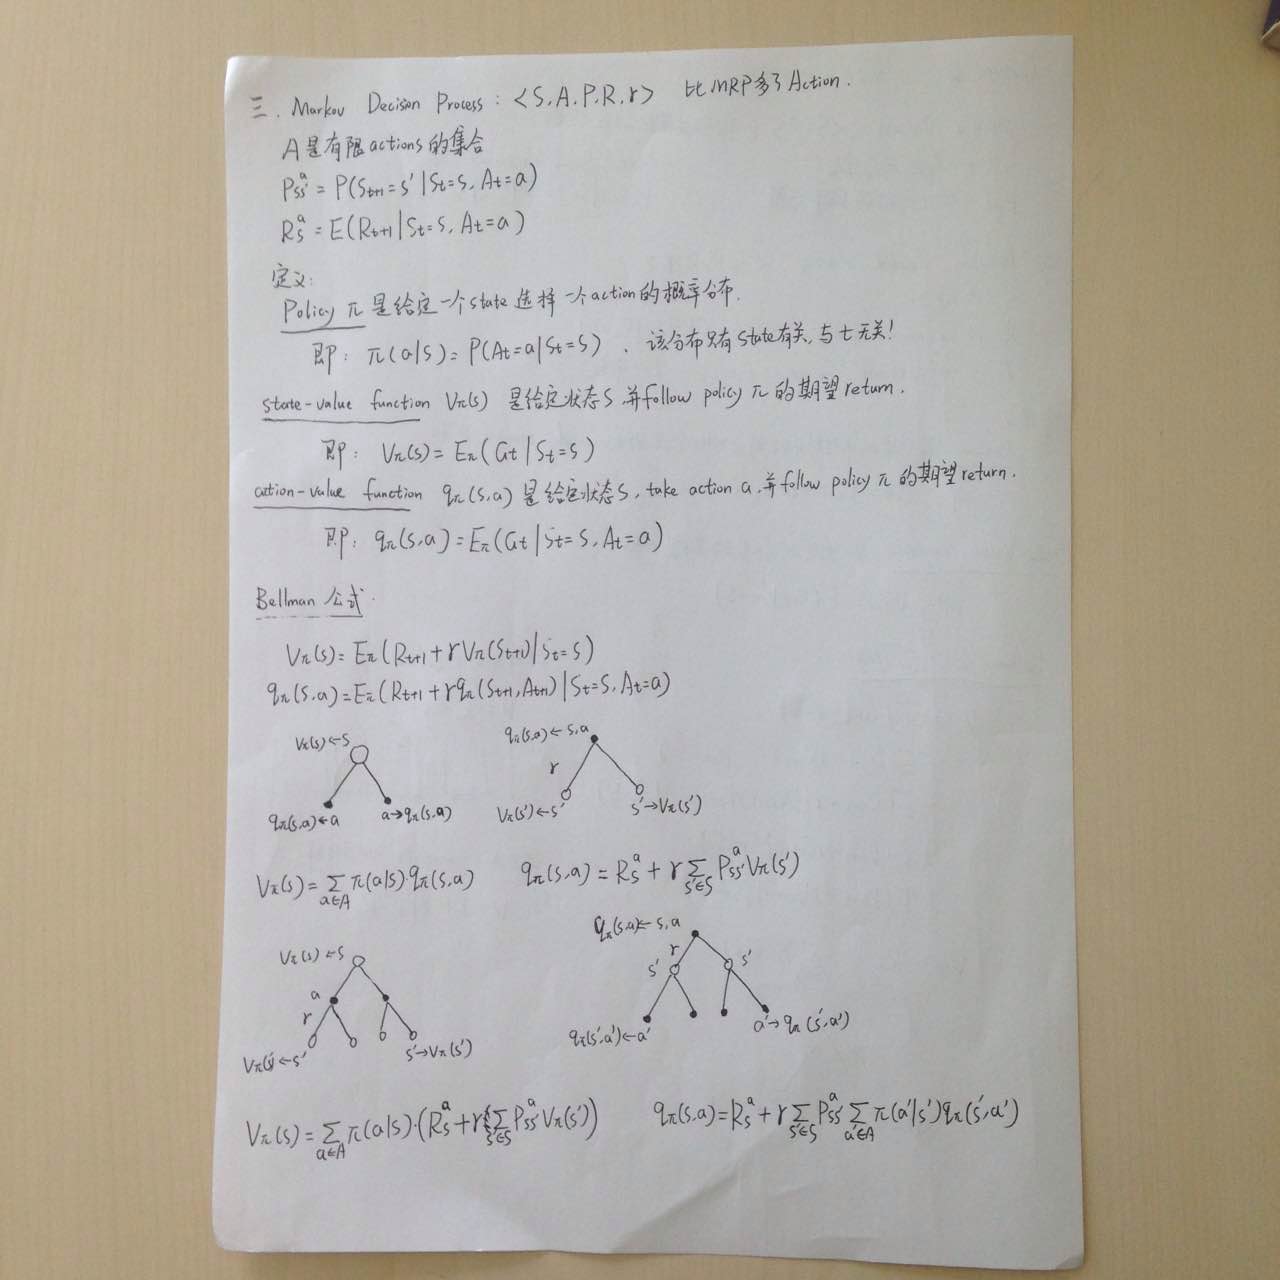 三. Markov Decision Process: <S.A.P.R.γ> 比MRP多了Action.
A是有限actions的集合
Pss'^a = P(St+1=s'|St=s, At=a)
Rs^a = E(Rt+1|St=s, At=a)
定义:
Policy π 是给定一个state 选择一个action的概率分布.
即: π(a|s)= P(At=a|St=s) . 该分布只有state有关, 与t无关!
state-value function Vπ(s) 是给定状态S,并follow policy π 的期望return.
即: Vπ(s)= Eπ(Gt|St=s)
action-value function qπ(s,a) 是给定状态S, take action a,并follow policy π 的期望return.
即: qπ(s,a)=Eπ(Gt|St=s, At=a)
Bellman 公式.
Vπ(s)= Eπ(Rt+1+γVπ(St+1)|St=s)
qπ(s,a)=Eπ(Rt+1+γqπ(St+1,At+1)|St=s, At=a)
Vπ(s)←s
qπ(s,a)←a a→qπ(s,a)
qπ(s,a)←s,a
r
Vπ(s')←s' s'→Vπ(s')
Vπ(s)=∑a∈A π(a|s)·qπ(s,a) qπ(s,a)=Rs^a+γ∑s'∈S Pss'^a Vπ(s')
Vπ(s)←s
a
r
Vπ(s')←s' s'→Vπ(s')
qπ(s,a)←s,a
r
s' s'
qπ(s',a')←a' a'→qπ(s',a')
Vπ(s)=∑a∈A π(a|s)·(Rs^a+γ∑s'∈S Pss'^a Vπ(s')) qπ(s,a)=Rs^a+γ∑s'∈S Pss'^a ∑a'∈A π(a'|s')qπ(s',a')